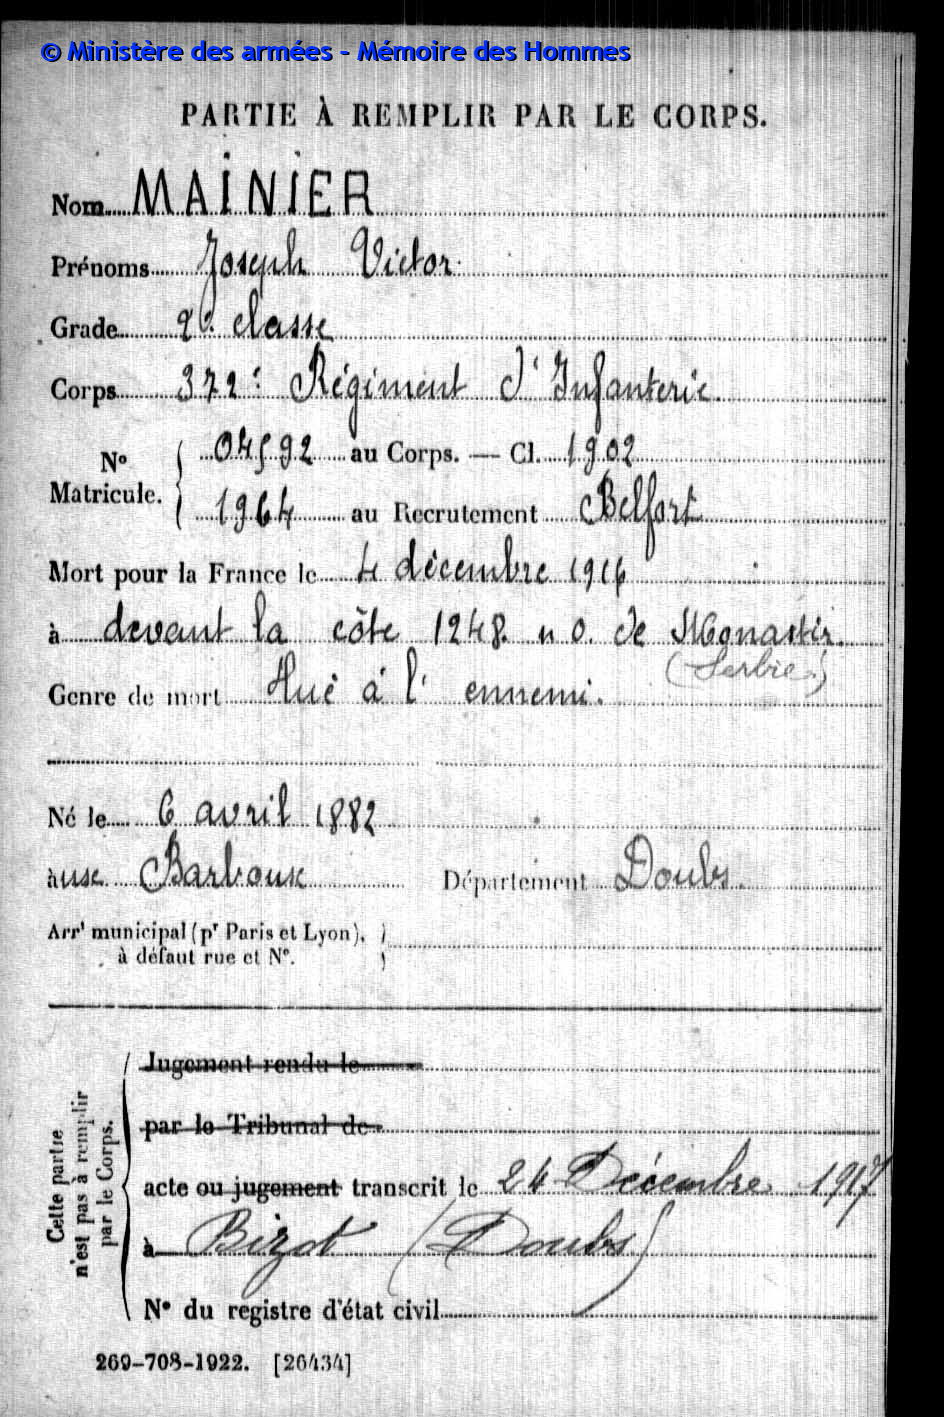 © Ministère des armées - Mémoire des Hommes
PARTIE À REMPLIR PAR LE CORPS.
Nom MAINIER
Prénoms Joseph Victor
Grade 2e classe
Corps 372e Régiment d'Infanterie
N° Matricule. 04592 au Corps. — Cl. 1902
1964 au Recrutement Belfort
Mort pour la France le 4 décembre 1916
à devant la côte 1248 n o. de Monastir.
(Serbie)
Genre de mort Tué à l'ennemi.
Né le 6 avril 1882
à Barboux Département Doubs.
Arrt municipal (pr Paris et Lyon),
à défaut rue et N°.
Cette partie
n'est pas à remplir
par le Corps.
Jugement rendu le
par le Tribunal de
acte ou jugement transcrit le 24 Décembre 1917
à Bizot (Doubs)
N° du registre d'état civil
269-708-1922. [26434]